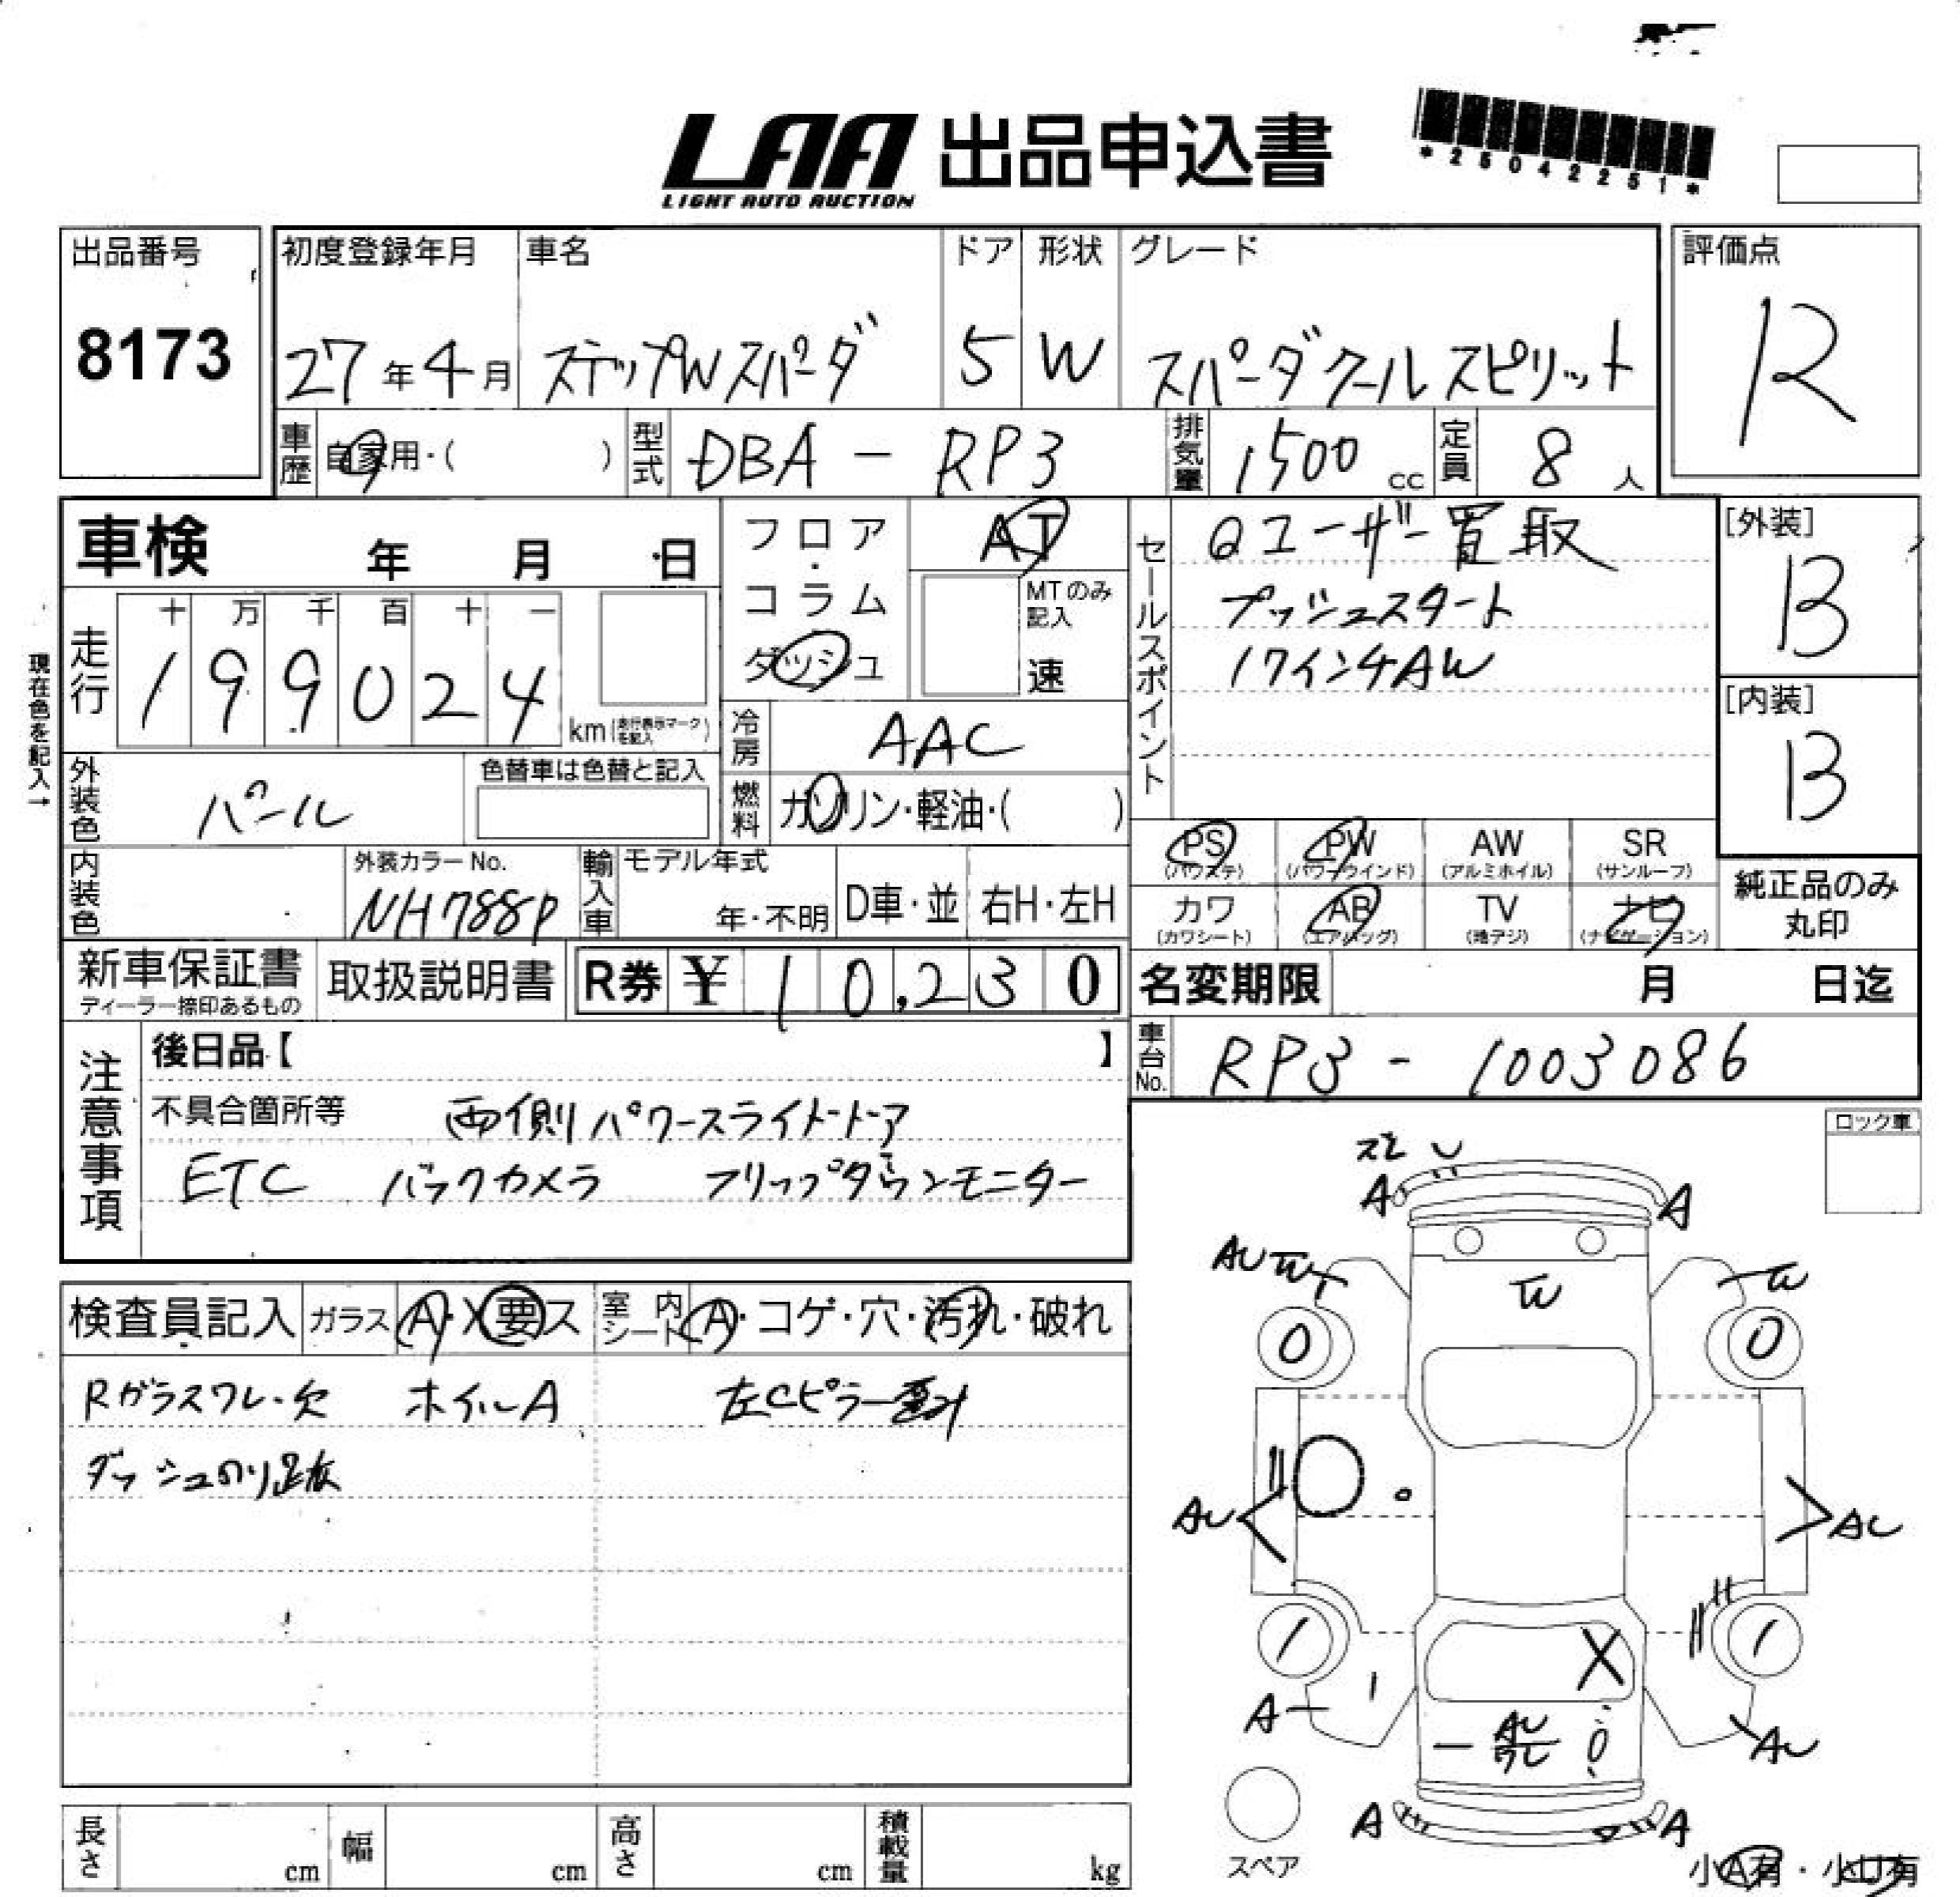 LAA 出品申込書
LIGHT AUTO AUCTION
*25042251*
出品番号
8173
初度登録年月
27年4月
車名
ステップWスパーダ
ドア
5
形状
W
グレード
スパーダクールスピリット
評価点
R
車歴
自家用・( )
型式
DBA - RP3
排気量
1500 cc
定員
8 人
車検 年 月 日
フロア・コラム
ダッシュ
AT
MTのみ記入
速
セールスポイント
Qユーザー買取
プッシュスタート
17インチAW
[外装]
B
[内装]
B
現在色を記入→
走行
十 万 千 百 十 一
1 9 9 0 2 4
km(走行表示マークを記入)
冷房
AAC
燃料
ガソリン・軽油・( )
外装色
パール
色替車は色替と記入
内装色
外装カラーNo.
NH788P
輸入車
モデル年式
年・不明
D車・並
右H・左H
PS
(パワステ)
PW
(パワーウインド)
AW
(アルミホイル)
SR
(サンルーフ)
カワ
(カワシート)
AB
(エアバッグ)
TV
(地デジ)
ナビ
(ナビゲーション)
純正品のみ
丸印
新車保証書
ディーラー捺印あるもの
取扱説明書
R券 ¥ 10,230
名変期限 月 日迄
車台No.
RP3 - 1003086
注意事項
後日品【 】
不具合箇所等 両側パワースライドドア
ETC バックカメラ フリップダウンモニター
ロック車
検査員記入
ガラス A・X要ス
室内シート A・コゲ・穴・汚れ・破れ
Rガラスワレ・欠 ホイルA 左Cピラー歪み
ダッシュのり跡
スレ
A
A
AU
W
W
W
0
0
AU
AU
1
1
X
A
AU
一部
AU
ワレ
A
A
スペア
小A有・小U有
長さ cm
幅 cm
高さ cm
積載量 kg